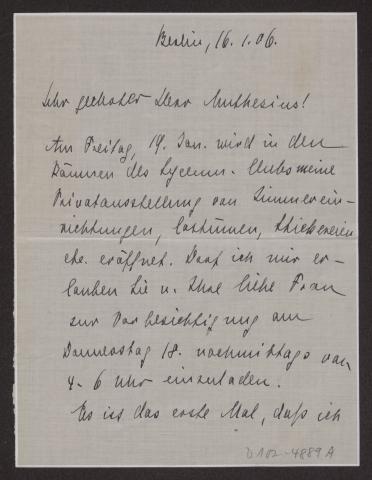 Berlin, 16. 1. 06.
Sehr geehrter Herr Muthesius!
Am Freitag, 19. Jan. wird in den
Räumen des Lyceum-Clubs meine
Privatausstellung von Zimmerein-
richtungen, Costümen, Stickereien
etc. eröffnet. Darf ich mir er-
lauben Sie u. Ihre liebe Frau
zur Vorbesichtigung am
Donnerstag 18. nachmittags von
4-6 Uhr einzuladen.
Es ist das erste Mal, daß ich
D 102-4889 A